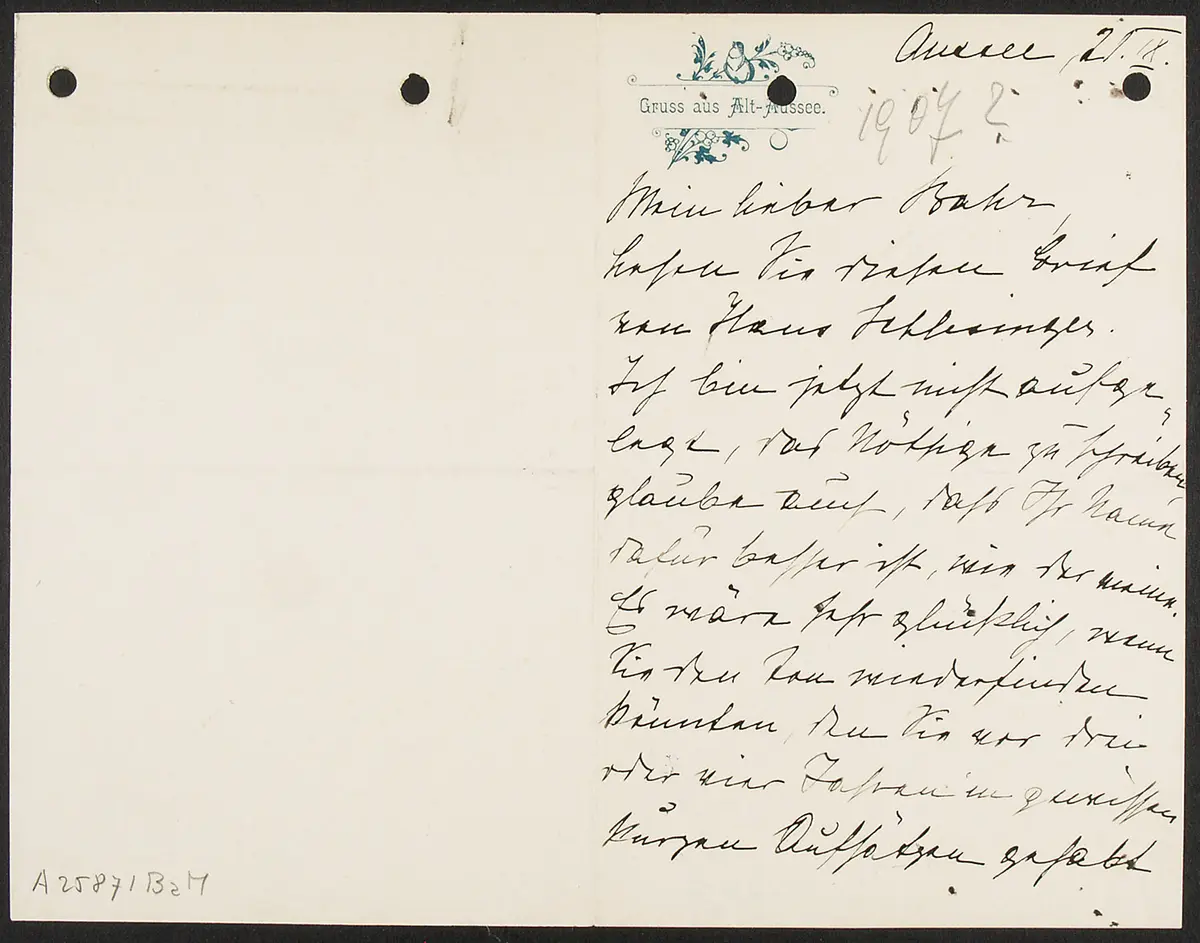 Aussee, 21. IX.
Gruss aus Alt-Aussee.
1907?
Mein lieber Bahr,
lesen Sie diesen Brief
von Hans Schlesinger.
Ich bin jetzt nicht aufge-
legt, das Nöthige zu schreiben,
glaube auch, dass Ihr Name
dafür besser ist, wie der meine.
Es wäre sehr glücklich, wenn
Sie den Ton wiederfinden
könnten, den Sie vor drei
oder vier Jahren in gewissen
kurzen Aufsätzen gehabt
A25871BaM